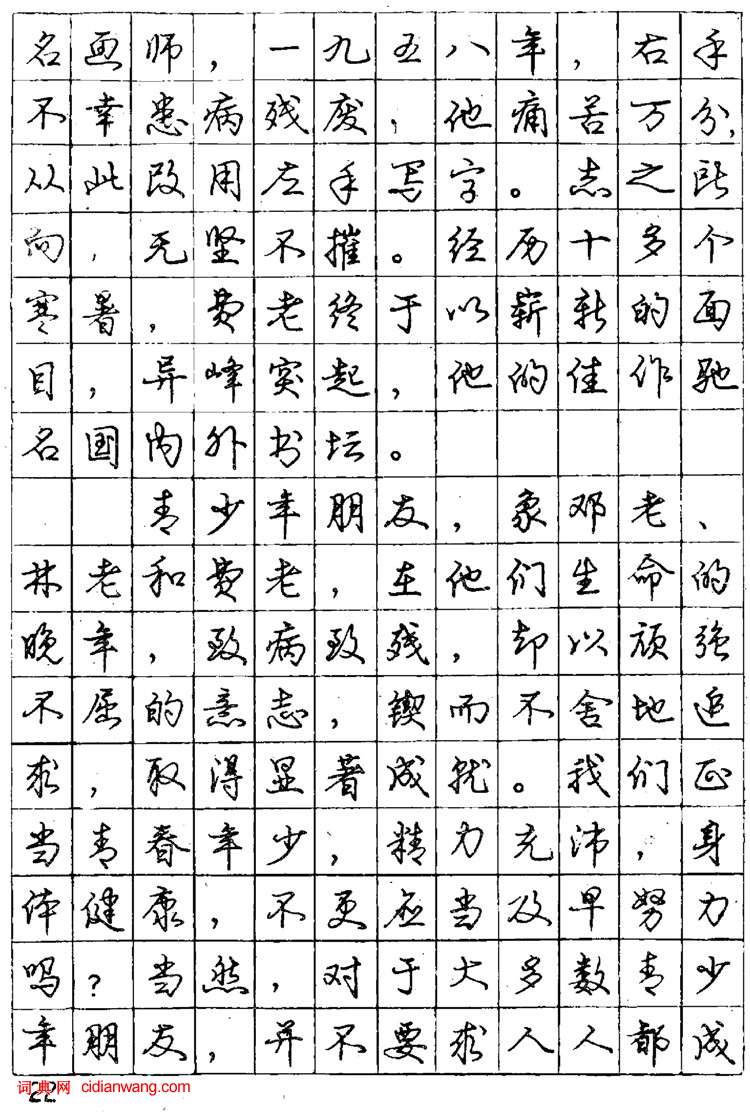 名画师，一九五八年，右手
不幸患病残废，他痛苦万分，
从此改用左手写字。志之所
向，无坚不摧。经历十多个
寒暑，费老终于以崭新的面
目，异峰突起，他的佳作驰
名国内外书坛。
青少年朋友，象邓老、
林老和费老，在他们生命的
晚年，致病致残，却以顽强
不屈的意志，锲而不舍地追
求，取得显著成就。我们正
当青春年少，精力充沛，身
体健康，不更应当及早努力
吗？当然，对于大多数青少
年朋友，并不要求人人都成
词典网 cidianwang.com
22